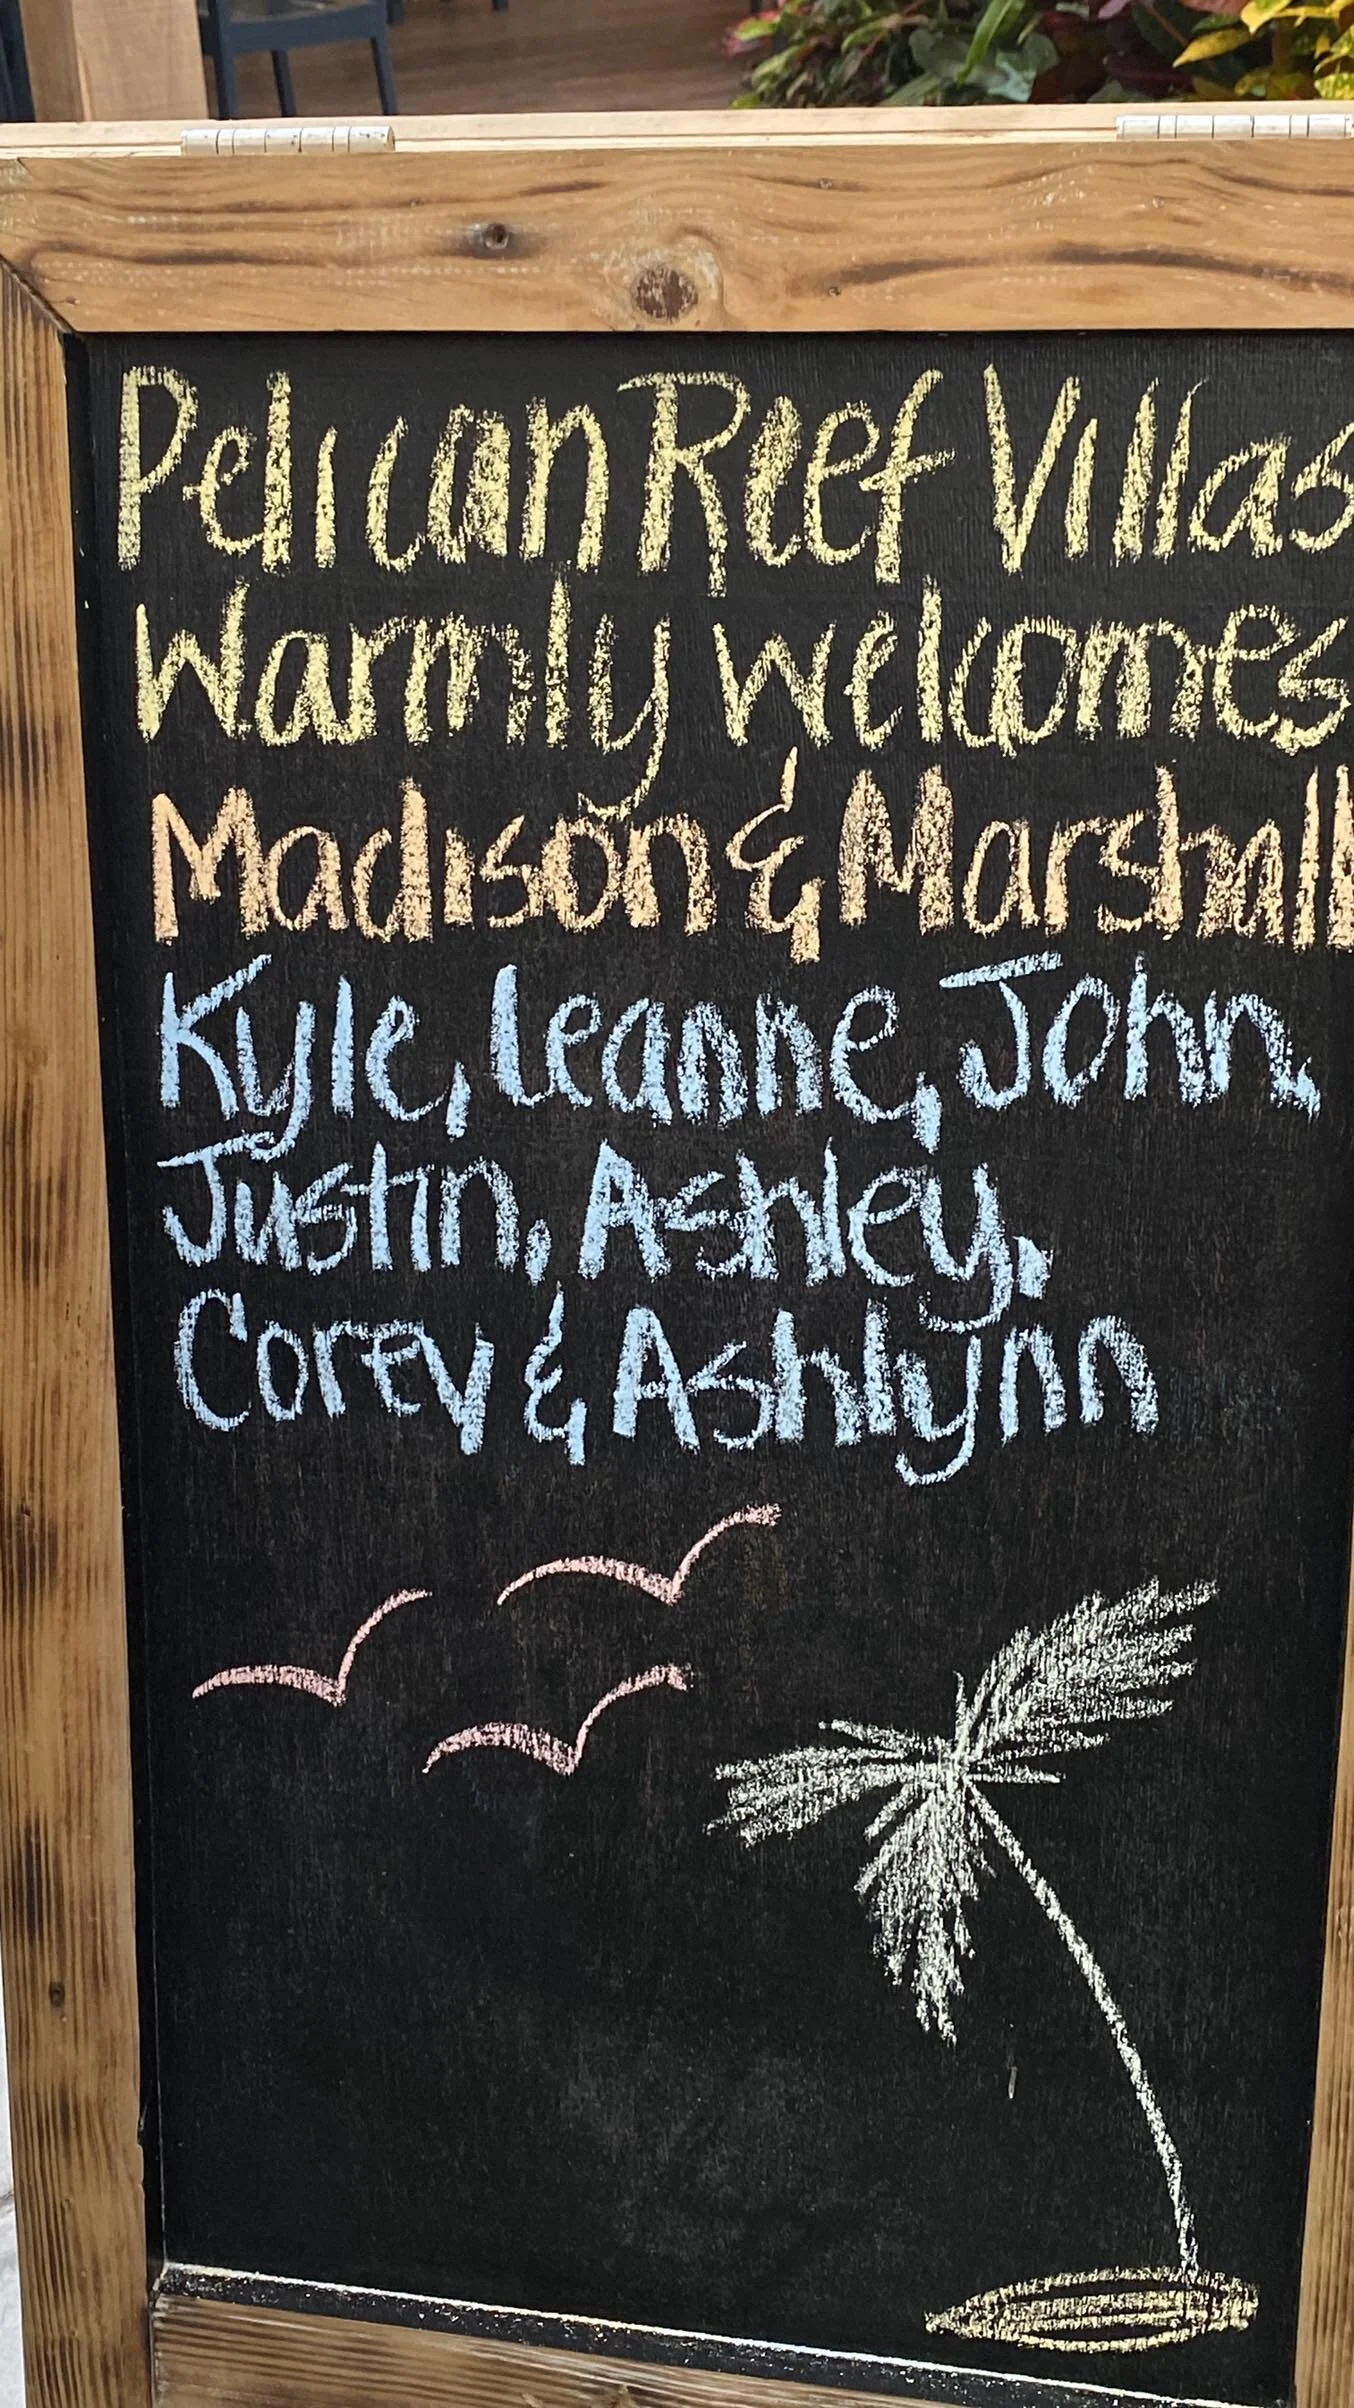 Pelican Reef Villas
Warmly welcomes
Madison & Marshall
Kyle, Leanne, John,
Justin, Ashley,
Corey & Ashlynn